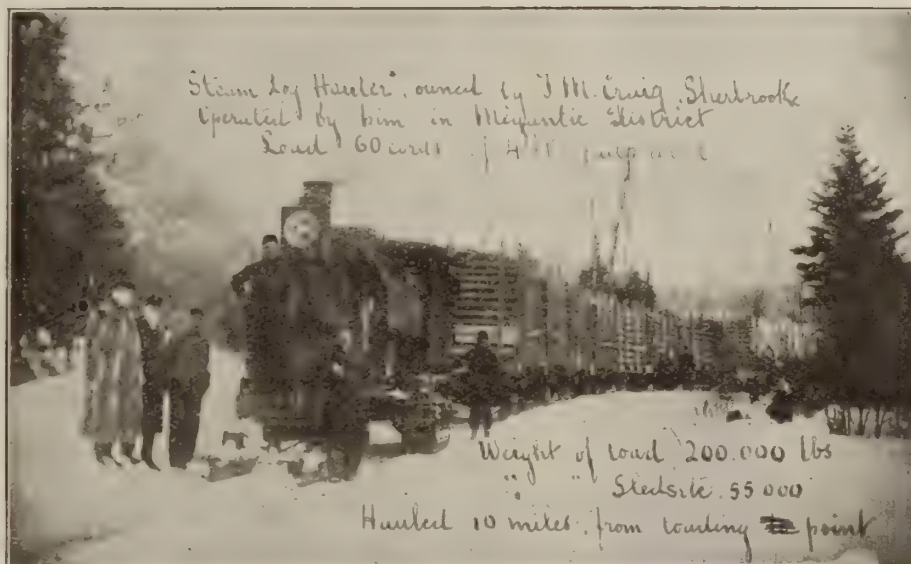 "Steam Log Hauler", owned by J M. Craig, Sherbrooke
Operated by him in Megantic District
Load 60 cords of 4 ft pulpwood
Weight of load 200.000 lbs
" " Sleds etc. 55 000
Hauled 10 miles. from loading point